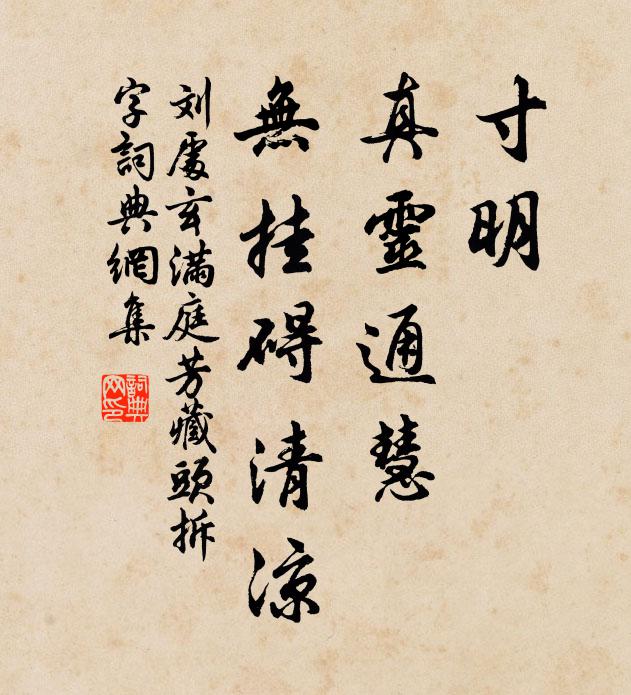 寸明
真靈通慧
無挂碍清涼
刘處玄满庭芳藏頭拆
字詞典網集
詞典网印